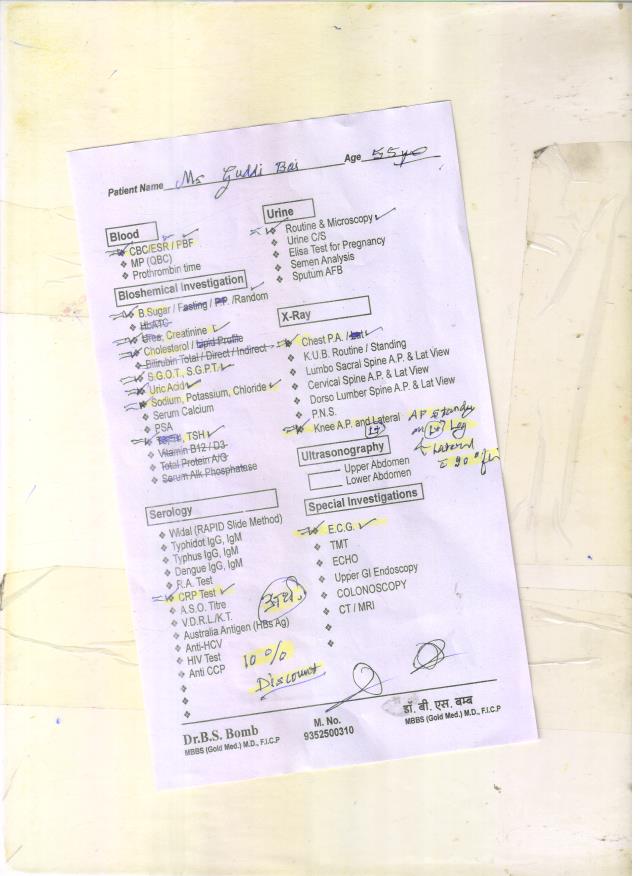 Patient Name Ms Guddi Bai Age 55 yo
Blood
CBC/ESR / PBF
MP (QBC)
Prothrombin time
Bioshemical Investigation
B.Sugar / Fasting / P.P. /Random
HbA1C
Urea, Creatinine
Cholesterol / Lipid Profile
Bilirubin Total / Direct / Indirect
S.G.O.T., S.G.P.T.
Uric Acid
Sodium, Potassium, Chloride
Serum Calcium
PSA
TSH
Vitamin B12 / D3
Total Protein A/G
Serum Alk Phosphatese
Serology
Widal (RAPID Slide Method)
Typhidot IgG, IgM
Typhus IgG, IgM
Dengue IgG, IgM
R.A. Test
CRP Test
A.S.O. Titre
V.D.R.L./K.T.
Australia Antigen (HBs Ag)
Anti-HCV
HIV Test
Anti CCP
10%
Discount
Urine
Routine & Microscopy
Urine C/S
Elisa Test for Pregnancy
Semen Analysis
Sputum AFB
X-Ray
Chest P.A. / Lat
K.U.B. Routine / Standing
Lumbo Sacral Spine A.P. & Lat View
Cervical Spine A.P. & Lat View
Dorso Lumber Spine A.P. & Lat View
P.N.S.
Knee A.P. and Lateral AP standing
on Lt Leg
Lateral
90°
Ultrasonography
Upper Abdomen
Lower Abdomen
Special Investigations
E.C.G.
TMT
ECHO
Upper GI Endoscopy
COLONOSCOPY
CT / MRI
Dr.B.S. Bomb
MBBS (Gold Med.) M.D., F.I.C.P
M. No.
9352500310
डॉ. बी. एस. बम्ब
MBBS (Gold Med.) M.D., F.I.C.P